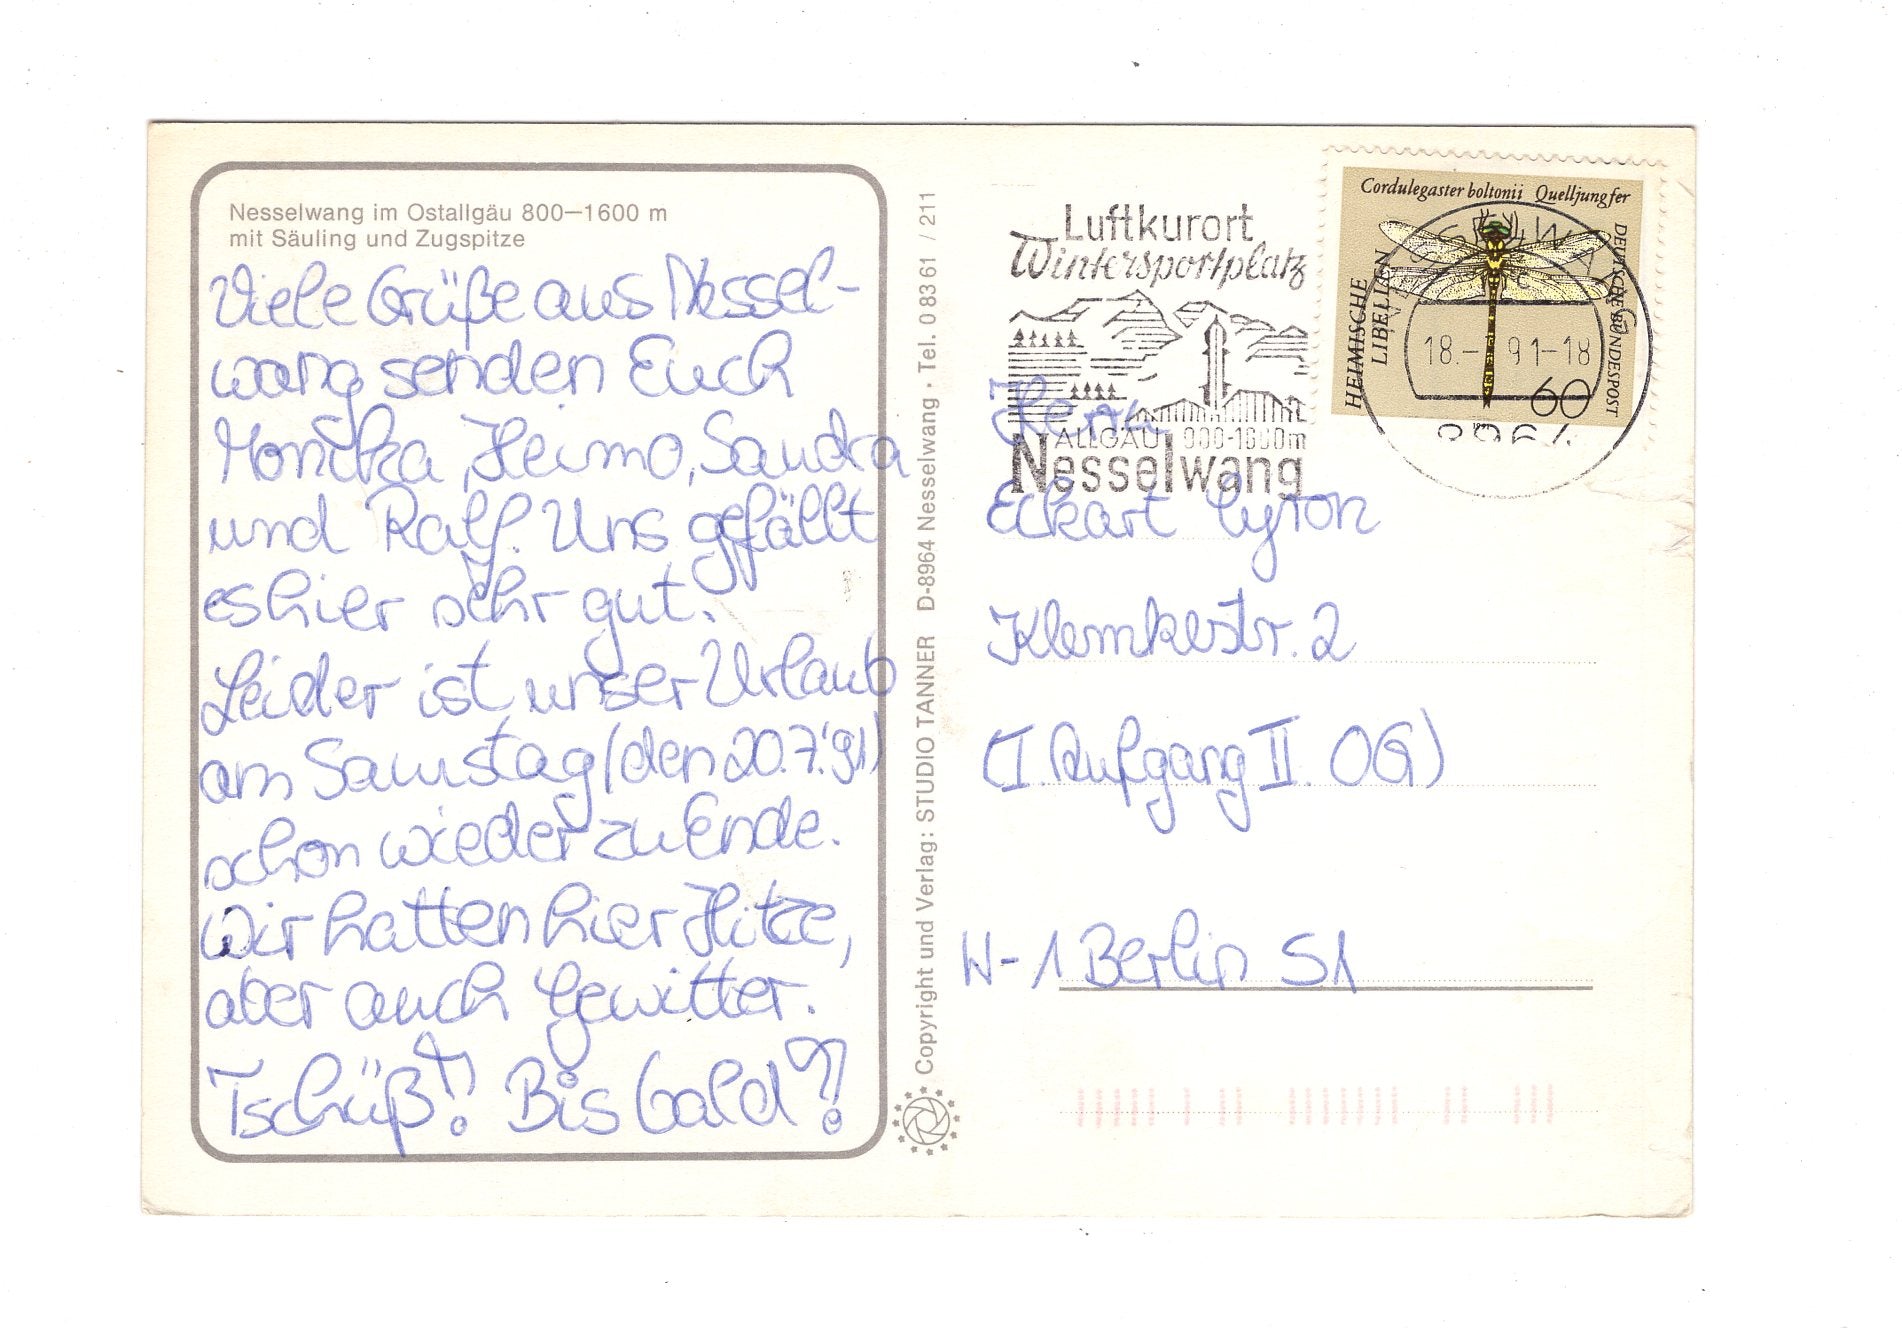 Nesselwang im Ostallgäu 800—1600 m
mit Säuling und Zugspitze
Viele Grüße aus Nessel-
wang senden Euch
Monika, Heimo, Sandra
und Ralf. Uns gefällt
es hier sehr gut.
Leider ist unser Urlaub
am Samstag (den 20.7.'91)
schon wieder zu Ende.
Wir hatten hier Hitze,
aber auch Gewitter.
Tschüß!! Bis bald?!
Copyright und Verlag: STUDIO TANNER D-8964 Nesselwang · Tel. 0 83 61 / 211
Luftkurort
Wintersportplatz
ALLGÄU 900-1600m
Nesselwang
Cordulegaster boltonii Quelljungfer
HEIMISCHE
LIBELLEN
DEUTSCHE BUNDESPOST
60
18.- 91-18
8964
Herrn
Eckart
Klemkestr. 2
(I Aufgang II OG)
W-1 Berlin 51